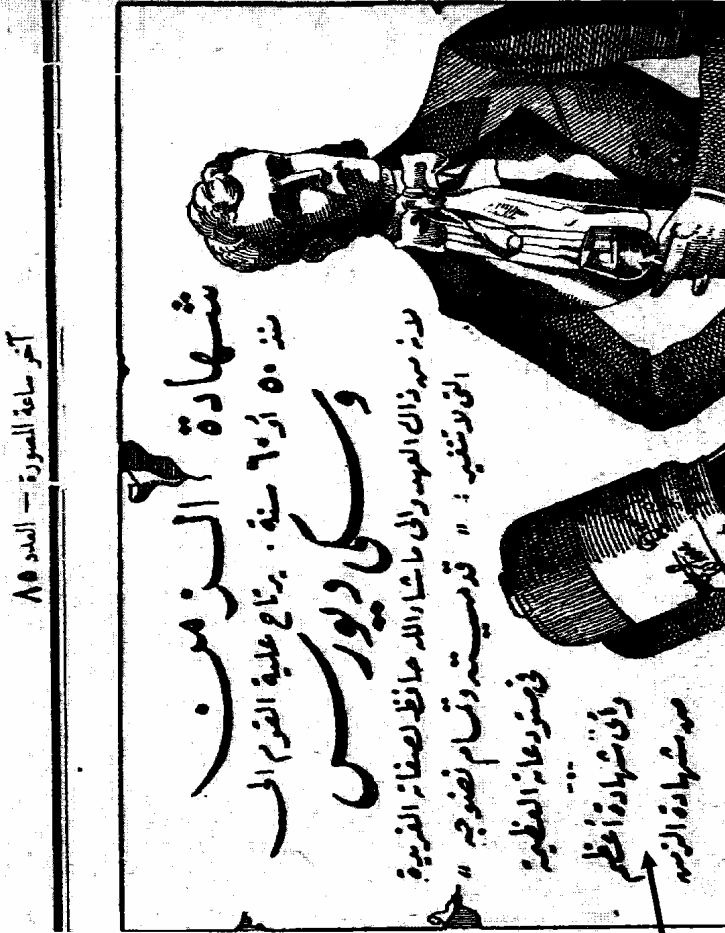 آخر ساعة المصورة — العدد ٨٥
شهادة الزمن
منذ ٥٠ أو ٦٠ سنة . يرتاح علية القوم الى
وسكى ديورس
لانه من ذاك العهد والى ما شاء الله حافظ لصفاته الفريدة
التى لا تتغير : « قدميته وتمام نضوجه »
فى مستودعاته العظيمة
وأى شهادة أعظم
من شهادة الزمن